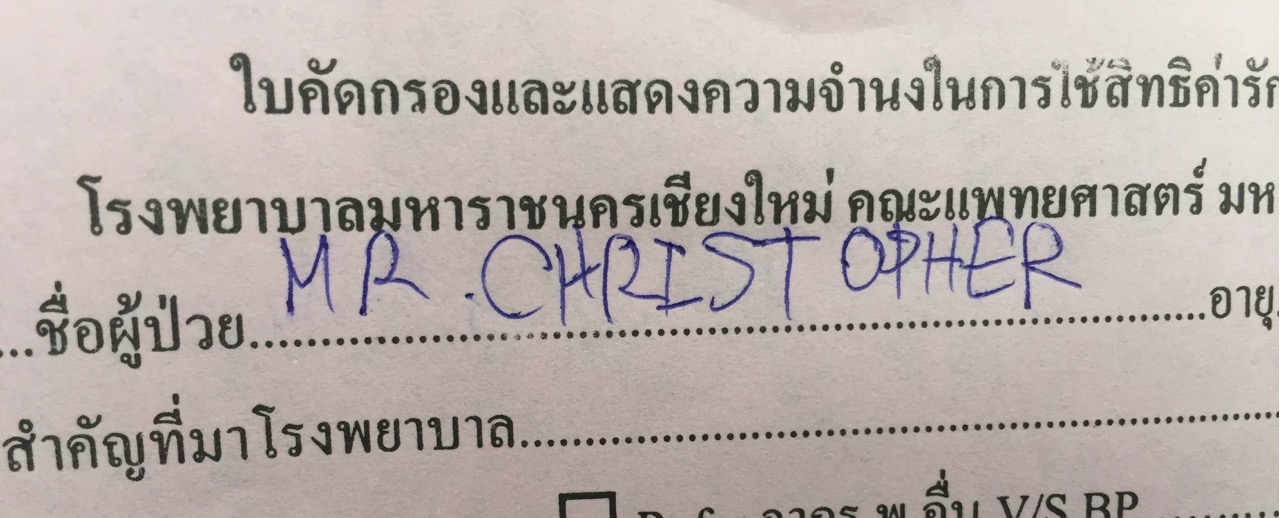 ใบคัดกรองและแสดงความจำนงในการใช้สิทธิค่ารัก
โรงพยาบาลมหาราชนครเชียงใหม่ คณะแพทยศาสตร์ มห
...ชื่อผู้ป่วย....MR. CHRISTOPHER....อายุ.
สำคัญที่มาโรงพยาบาล....
Refer จาก รพ.อื่น V/S BP....